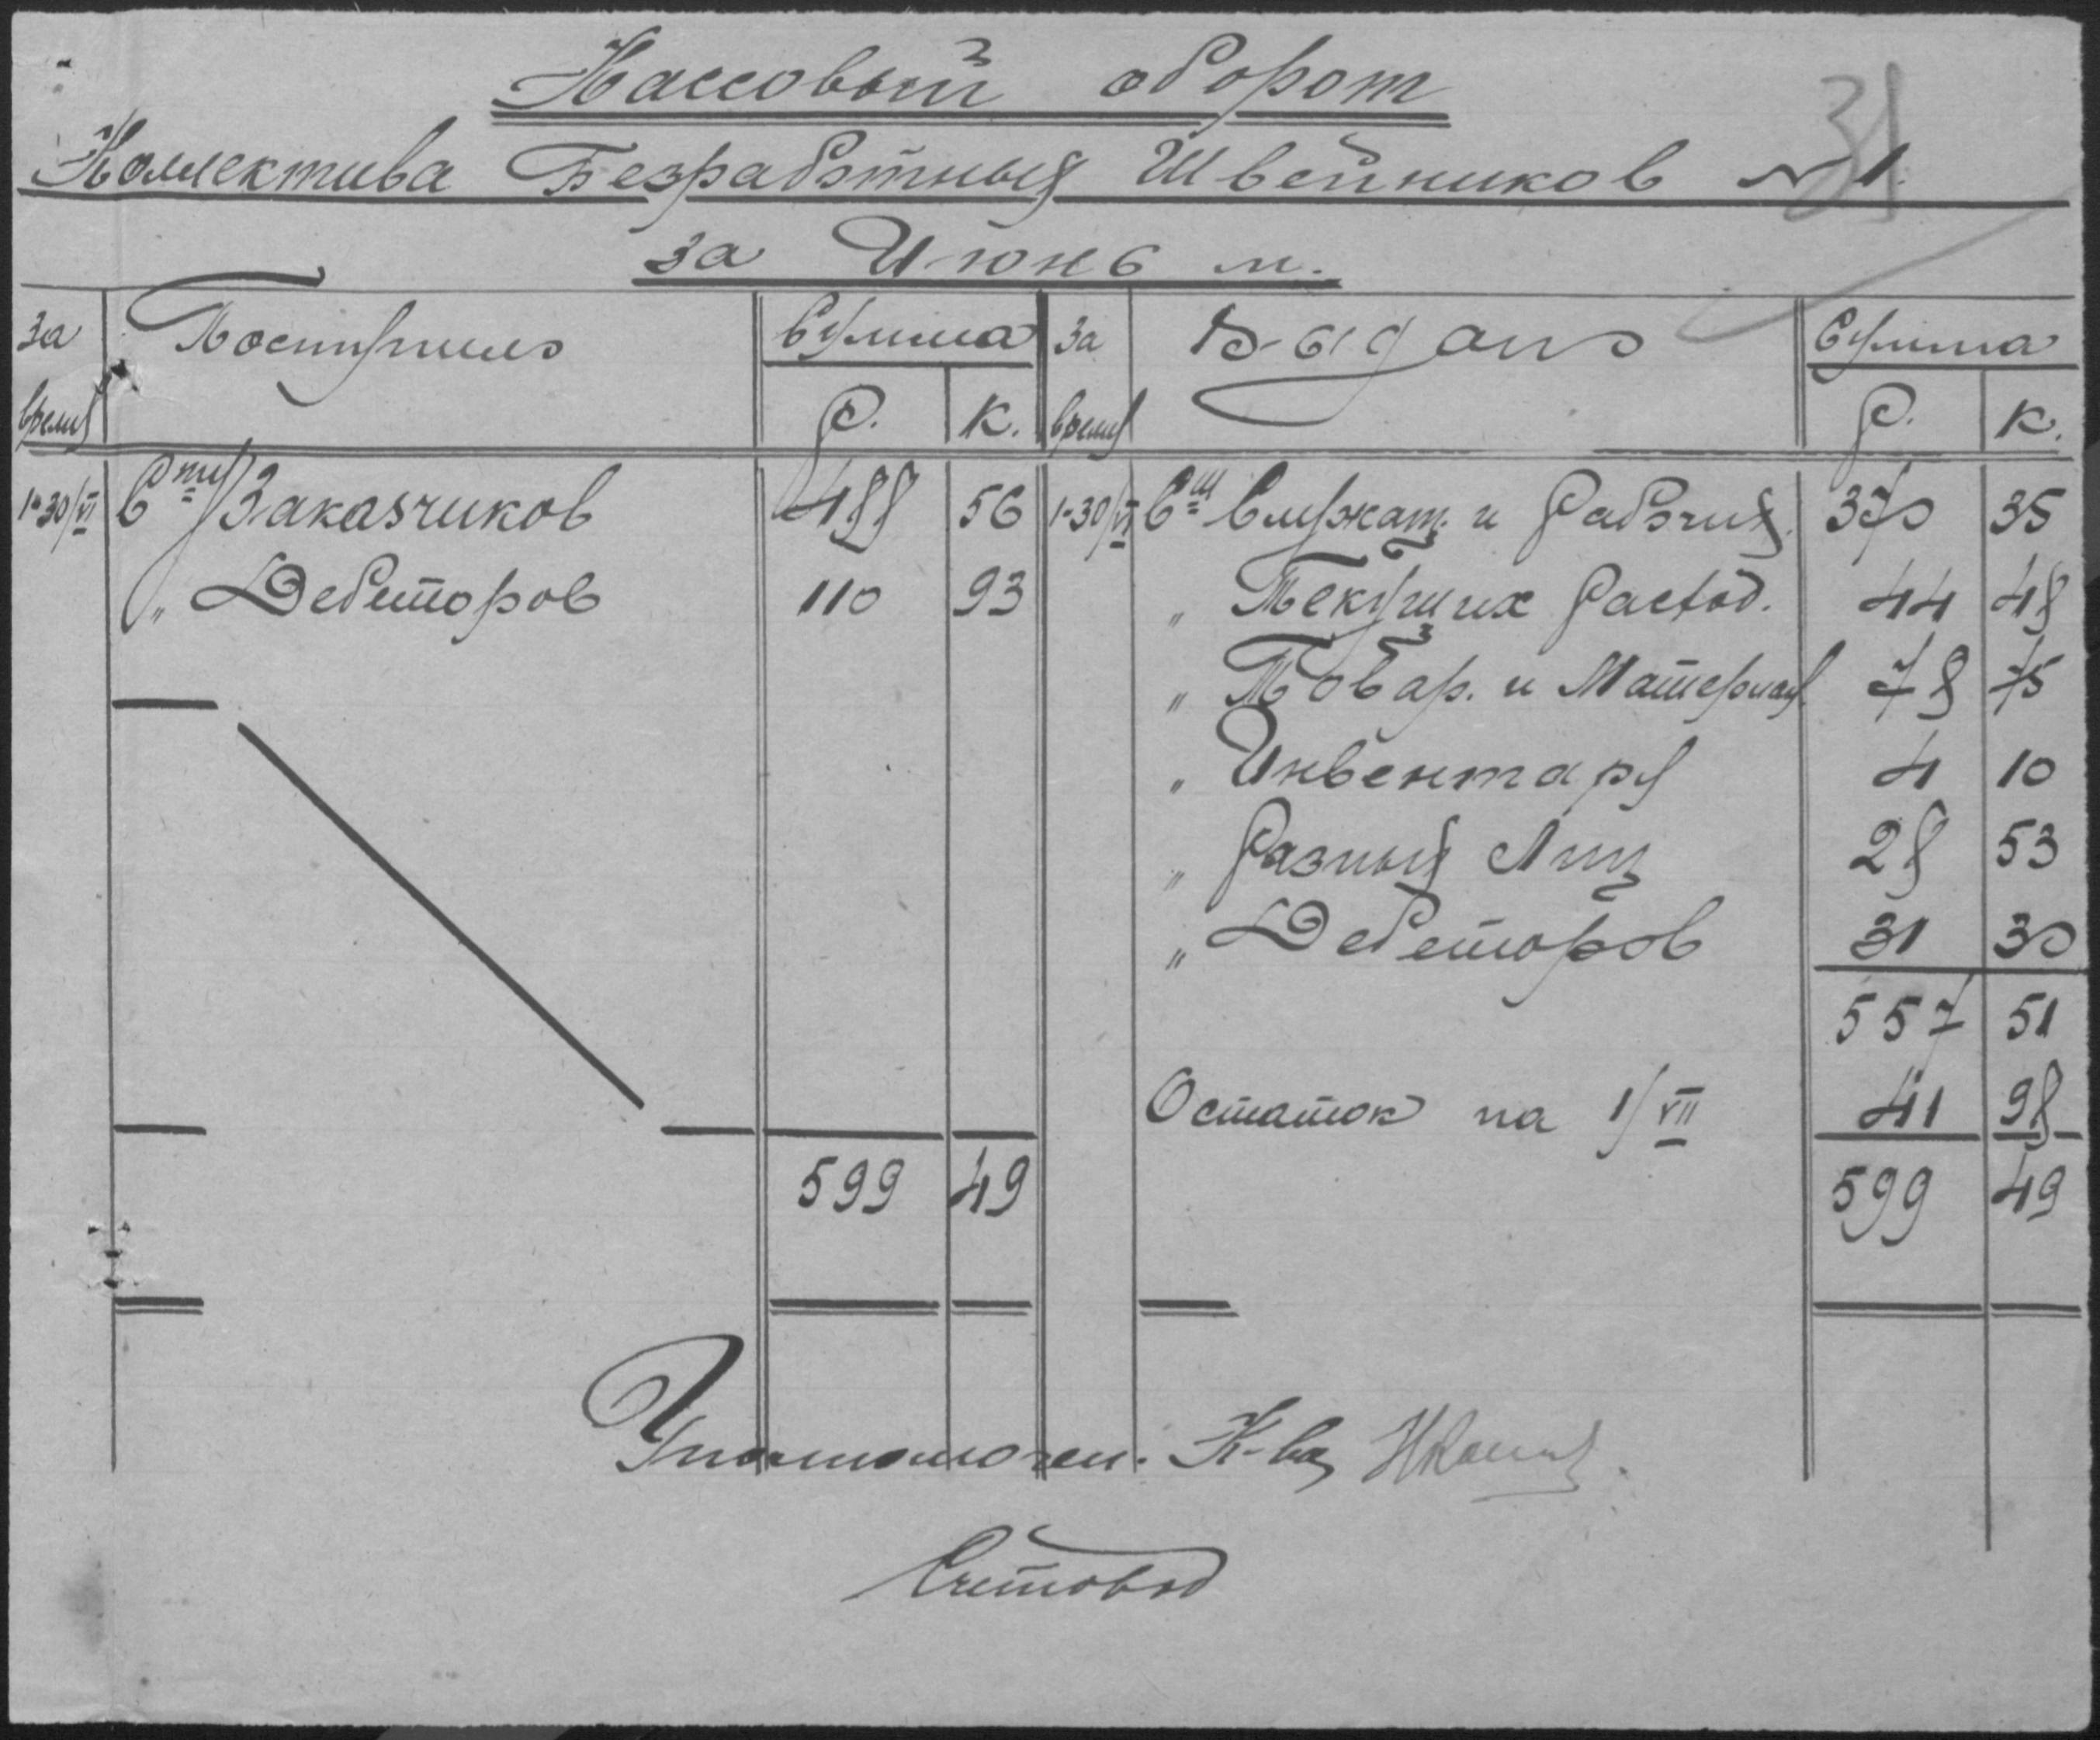 Кассовый оборот
31
Коллектива Безработных Швейников № 1.
за Июнь м.
За время Поступило Сумма За время Выдано Сумма
р. к. р. к.
1-30/VI Сту Заказчиков 488 56 1-30/VI Сш Служащ. и Рабочих. 370 35
„ Дебиторов 110 93 „ Текущих Расход. 44 48
„ Товар. и Материал. 78 75
„ Инвентаря 4 10
„ Разных Лиц 28 53
„ Дебеторов 31 30
557 51
Остаток на 1/VII 41 98
599 49 599 49
Уполномочен. К-ва
Счетовод